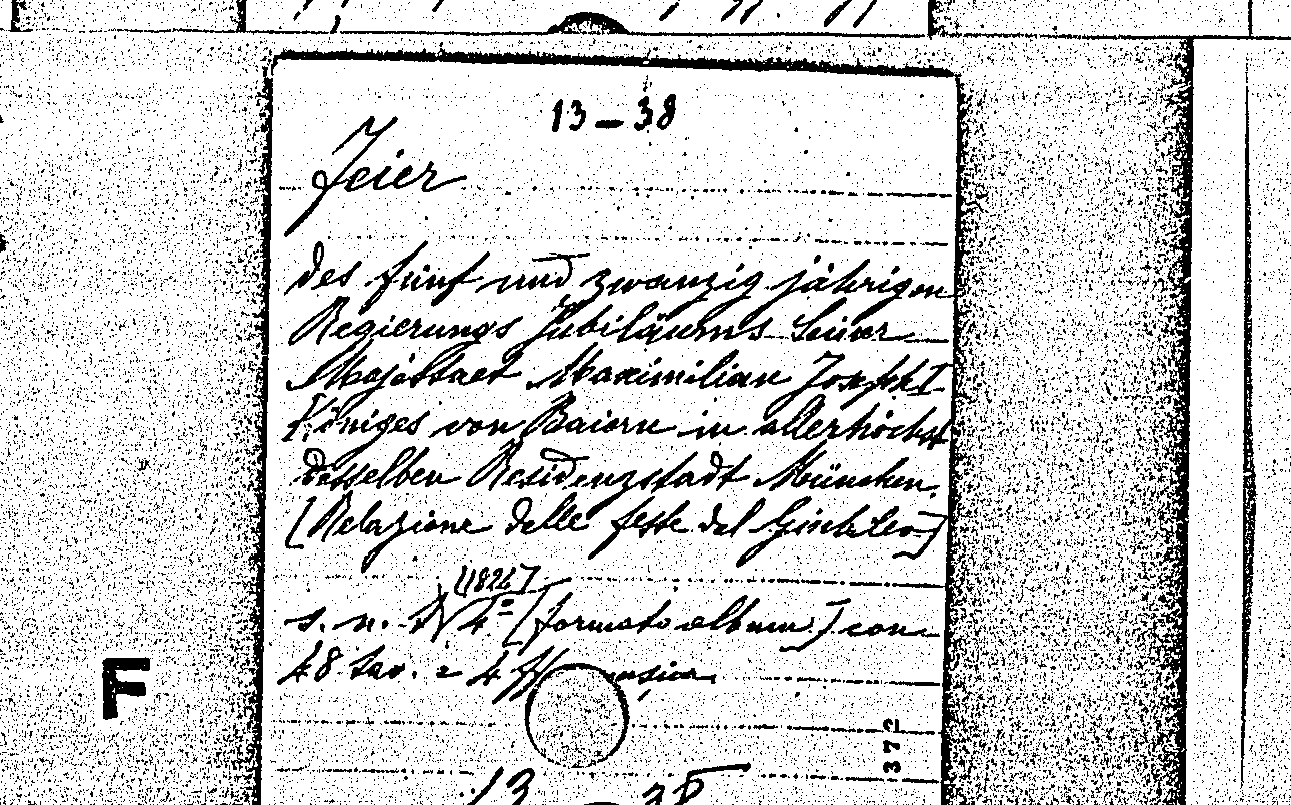 13-38
Feier
des fünf und zwanzig jährigen
Regierungs Jubiläums Seiner
Majestaet Maximilian Joseph I
Königes von Baiern in allerhöchst
desselben Residenzstadt München.
[Relazione delle feste del Giubileo]
[1824]
s. n. 4º [formato album] con
48 tav. e 4 ff. musica.
372
F
13 38